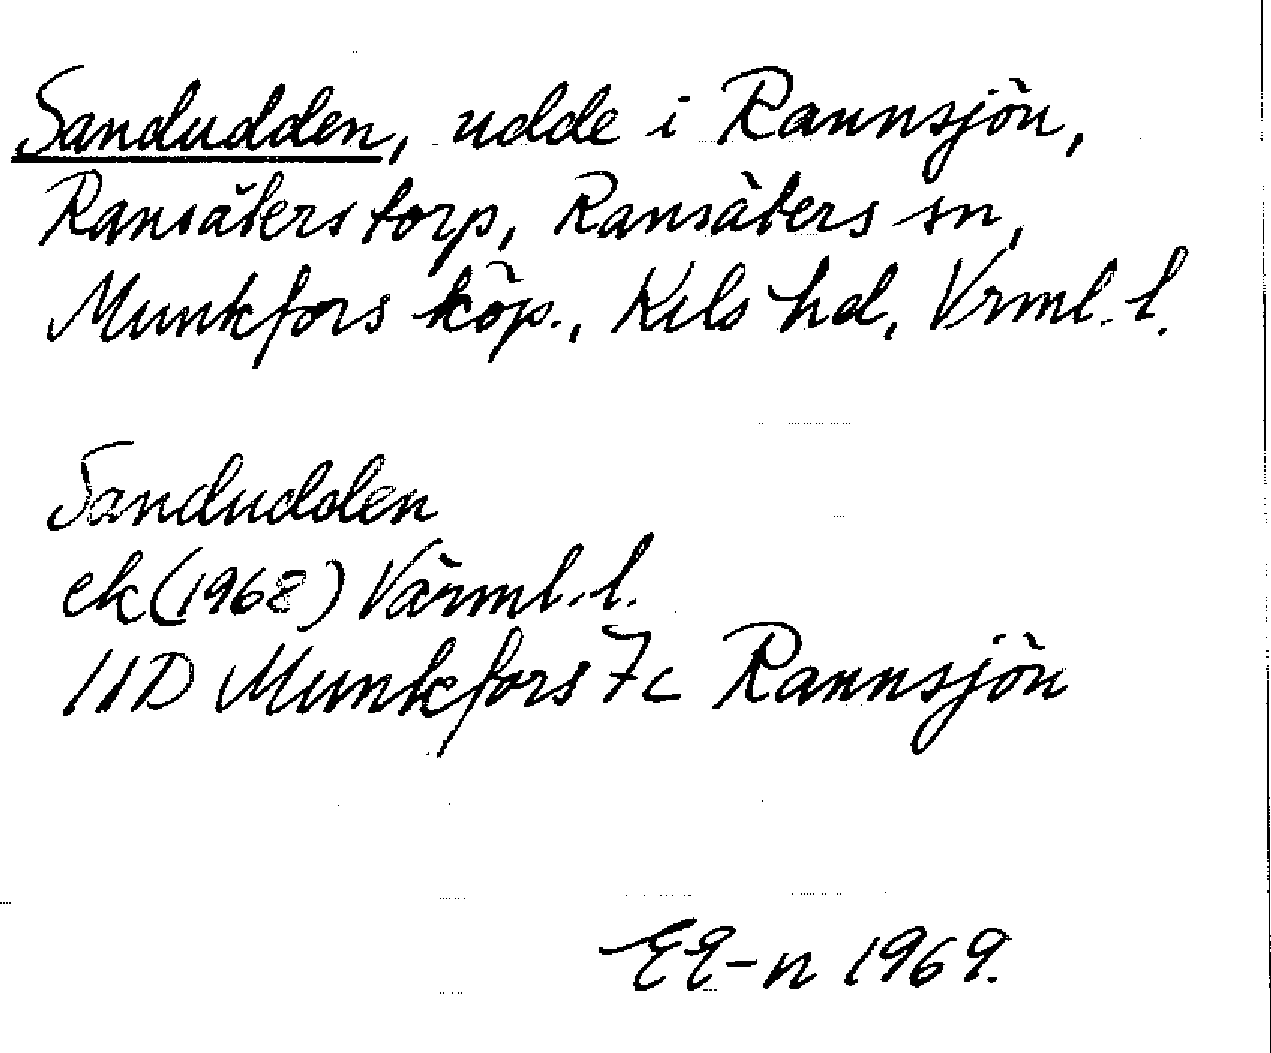 Sandudden, udde i Rannsjön,
Ransäters torp, Ransäters sn,
Munkfors köp., Kils hd, Vrml. l.
Sandudden
ek (1968) Värml. l.
11D Munkfors 7c Rannsjön
1969.